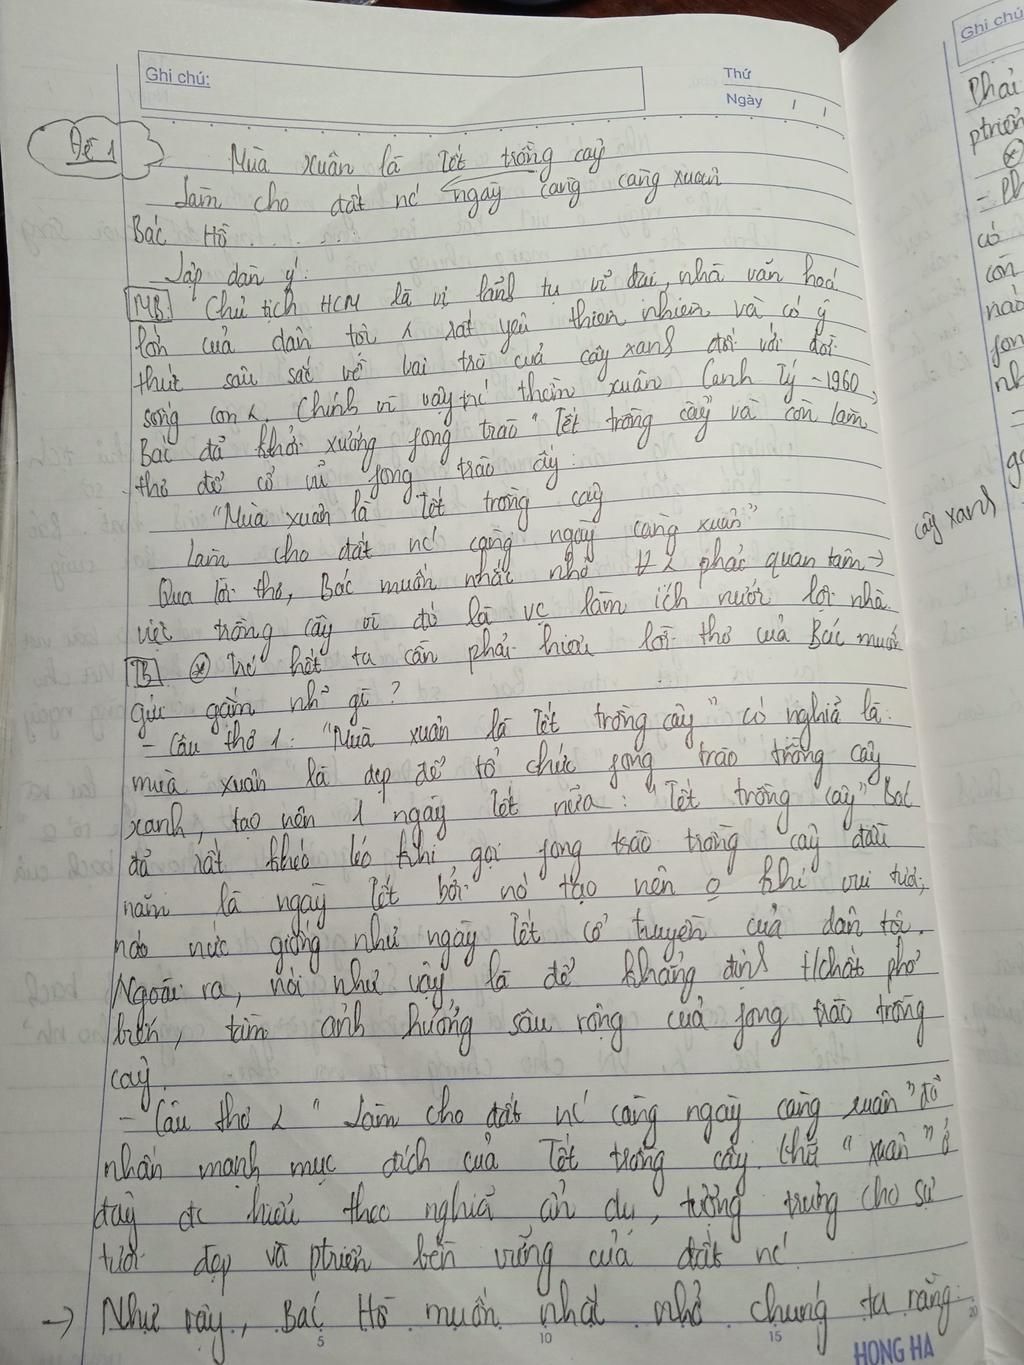 Ghi chú:
Thứ
Ngày / /
Đề 1
Mùa xuân là Tết trồng cây
Làm cho đất nc ngày càng càng xuân
Bác Hồ . . . . . .
Lập dàn ý:
MB. Chủ tịch HCM là vị lãnh tụ vĩ đại, nhà văn hoá
lớn của dân tộc rất yêu thiên nhiên và có ý
thức sâu sắc về vai trò của cây xanh đối với đời
sống con. Chính vì vậy, thềm xuân Canh Tý - 1960,
Bác đã khởi xướng fong trào "Tết trồng cây" và còn làm
thơ để cổ vũ fong trào ấy:
"Mùa xuân là Tết trồng cây
Làm cho đất nc càng ngày càng xuân"
Qua lời thơ, Bác muốn nhắc nhở phải quan tâm →
việc trồng cây vì đó là vc làm ích nước lợi nhà.
TB ⊛ Trc hết ta cần phải hiểu lời thơ của Bác muốn
gửi gắm nh~ gì?
- Câu thơ 1: "Mùa xuân là Tết trồng cây" có nghĩa là:
mùa xuân là dịp để tổ chức fong trào trồng cây
xanh, tạo nên 1 ngày Tết nữa: "Tết trồng cây" Bác
đã rất khéo léo khi gọi fong trào trồng cây đầu
năm là ngày Tết bởi nó tạo nên o khí vui tươi,
náo nức giống như ngày Tết cổ truyền của dân tộc.
Ngoài ra, nói như vậy là để khẳng định t/chất phổ
biến, tầm ảnh hưởng sâu rộng của fong trào trồng
cây.
- Câu thơ 2 "Làm cho đất nc càng ngày càng xuân" đã
nhấn mạnh mục đích của Tết trồng cây. Chữ "xuân" ở
đây đc hiểu theo nghĩa ẩn dụ, tượng trưng cho sự
tươi đẹp và ptriển bền vững của đất nc
→ Như vậy, Bác Hồ muốn nhắc nhở chúng ta rằng:
5 10 15 20
HONG HA
Ghi chú
Phải
ptriển
⊛
- Ph
có
còn
nào
fon
nh
=
cây xanh